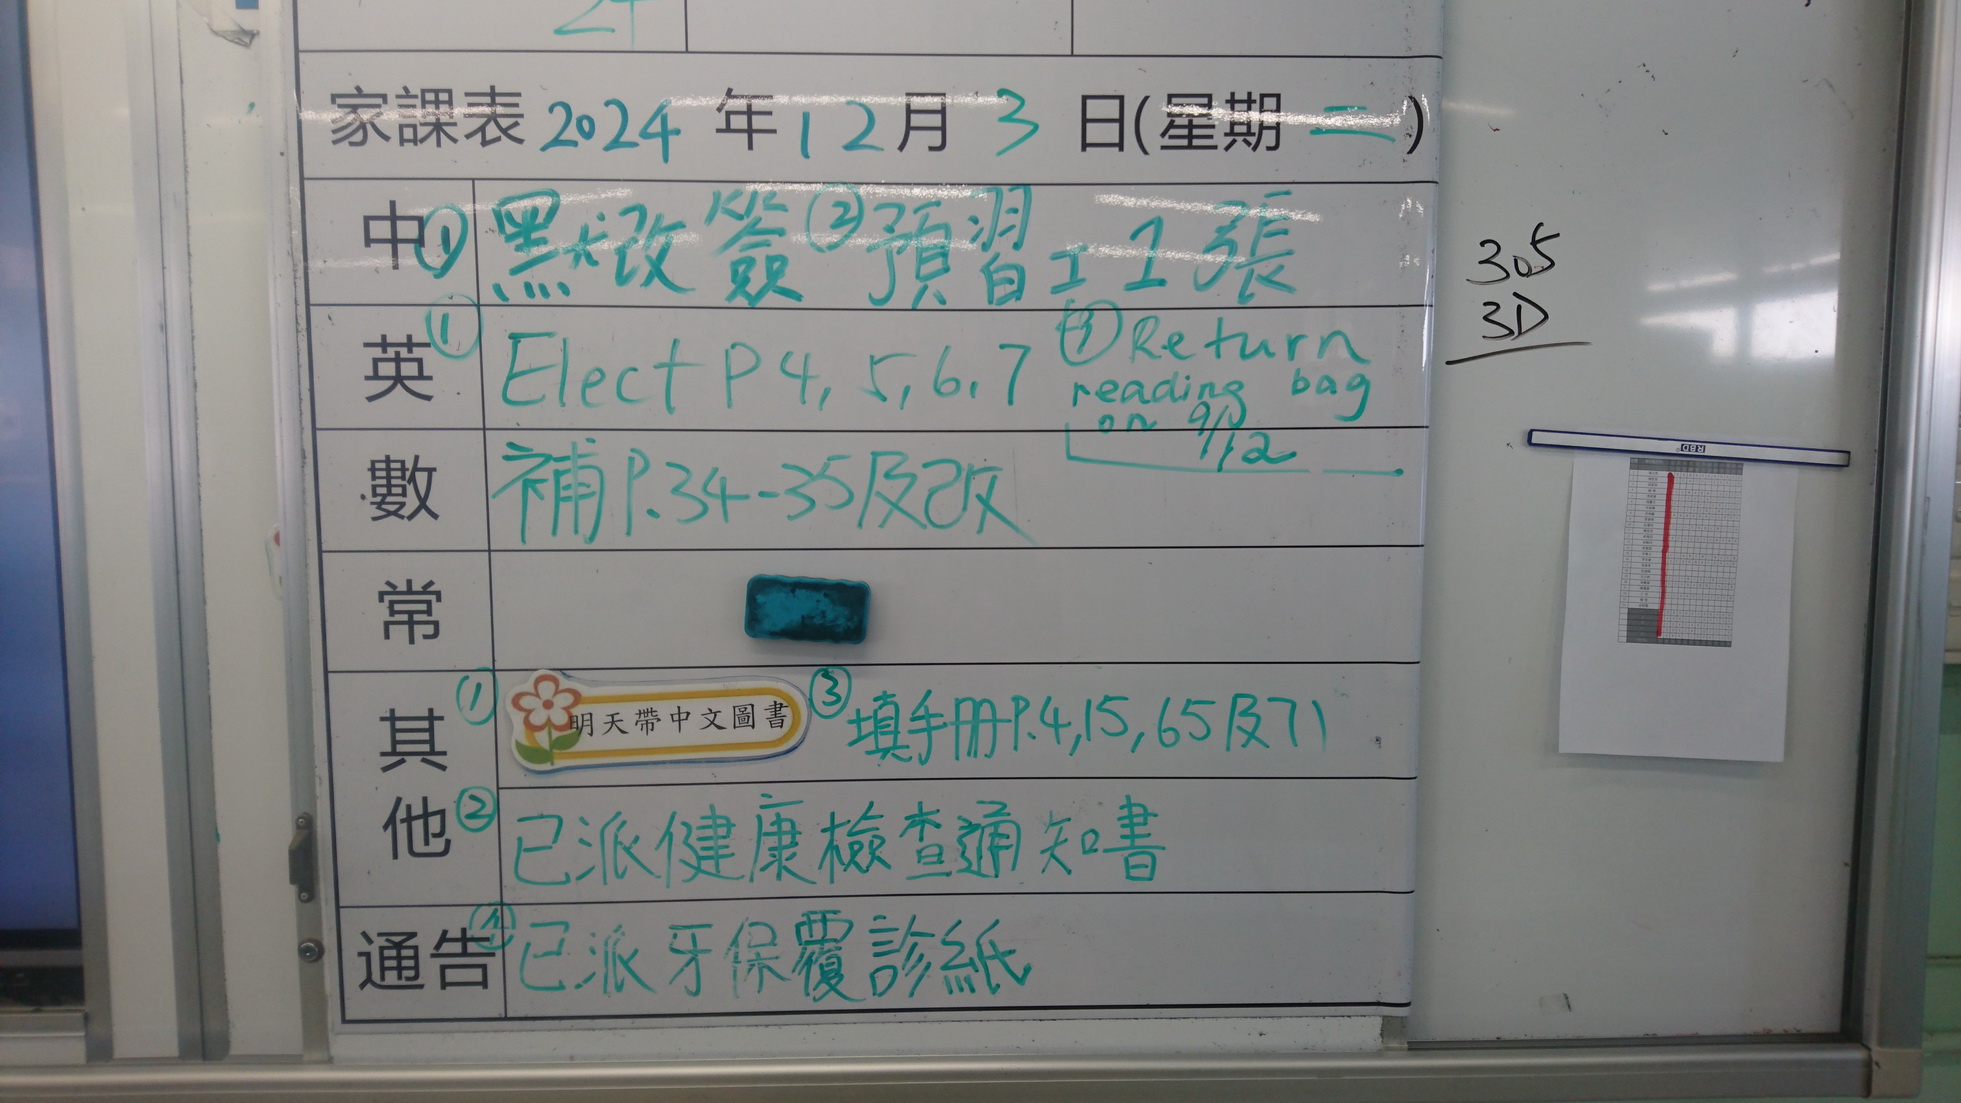 家課表 2024 年 12 月 3 日(星期 二)
中 ① 默改簽 ② 預習工1張
英 ① Elect P 4, 5, 6, 7
Return
reading bag
on 9/12
數 補P.34-35及改
常
其他 ① 明天帶中文圖書 ③ 填手冊P.4,15,65及71
② 已派健康檢查通知書
通告 已派牙保覆診紙
305
3D
RBD